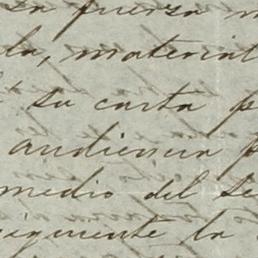 su fuerza m
la, material
su carta p
audiencia p
medio del Se
siguiente la